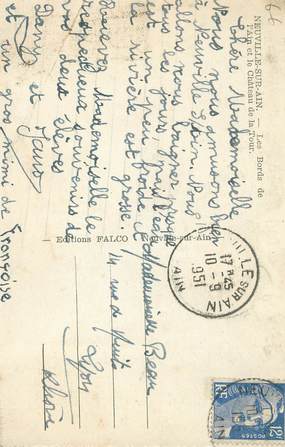 66
NEUVILLE-SUR-AIN. — Les Bords de
l'Ain et le Château de la Tour.
Chère Mademoiselle
Nous nous amusons bien
à Neuville s/Ain. Nous
allons nous baigner presque
tous les jours, mais l'eau
est un peu froide et
la rivière est grosse.
Recevez Mademoiselle le
respectueux souvenirs de
vos deux élèves
Dany et
et un gros mimi de Françoise
Editions FALCO Neuville-sur-Ain
Mademoiselle
14 rue de
Lyon
Rhône
LE SUR AIN
17 H 45
10 - 9
1951
AIN
POSTES
12F
RF